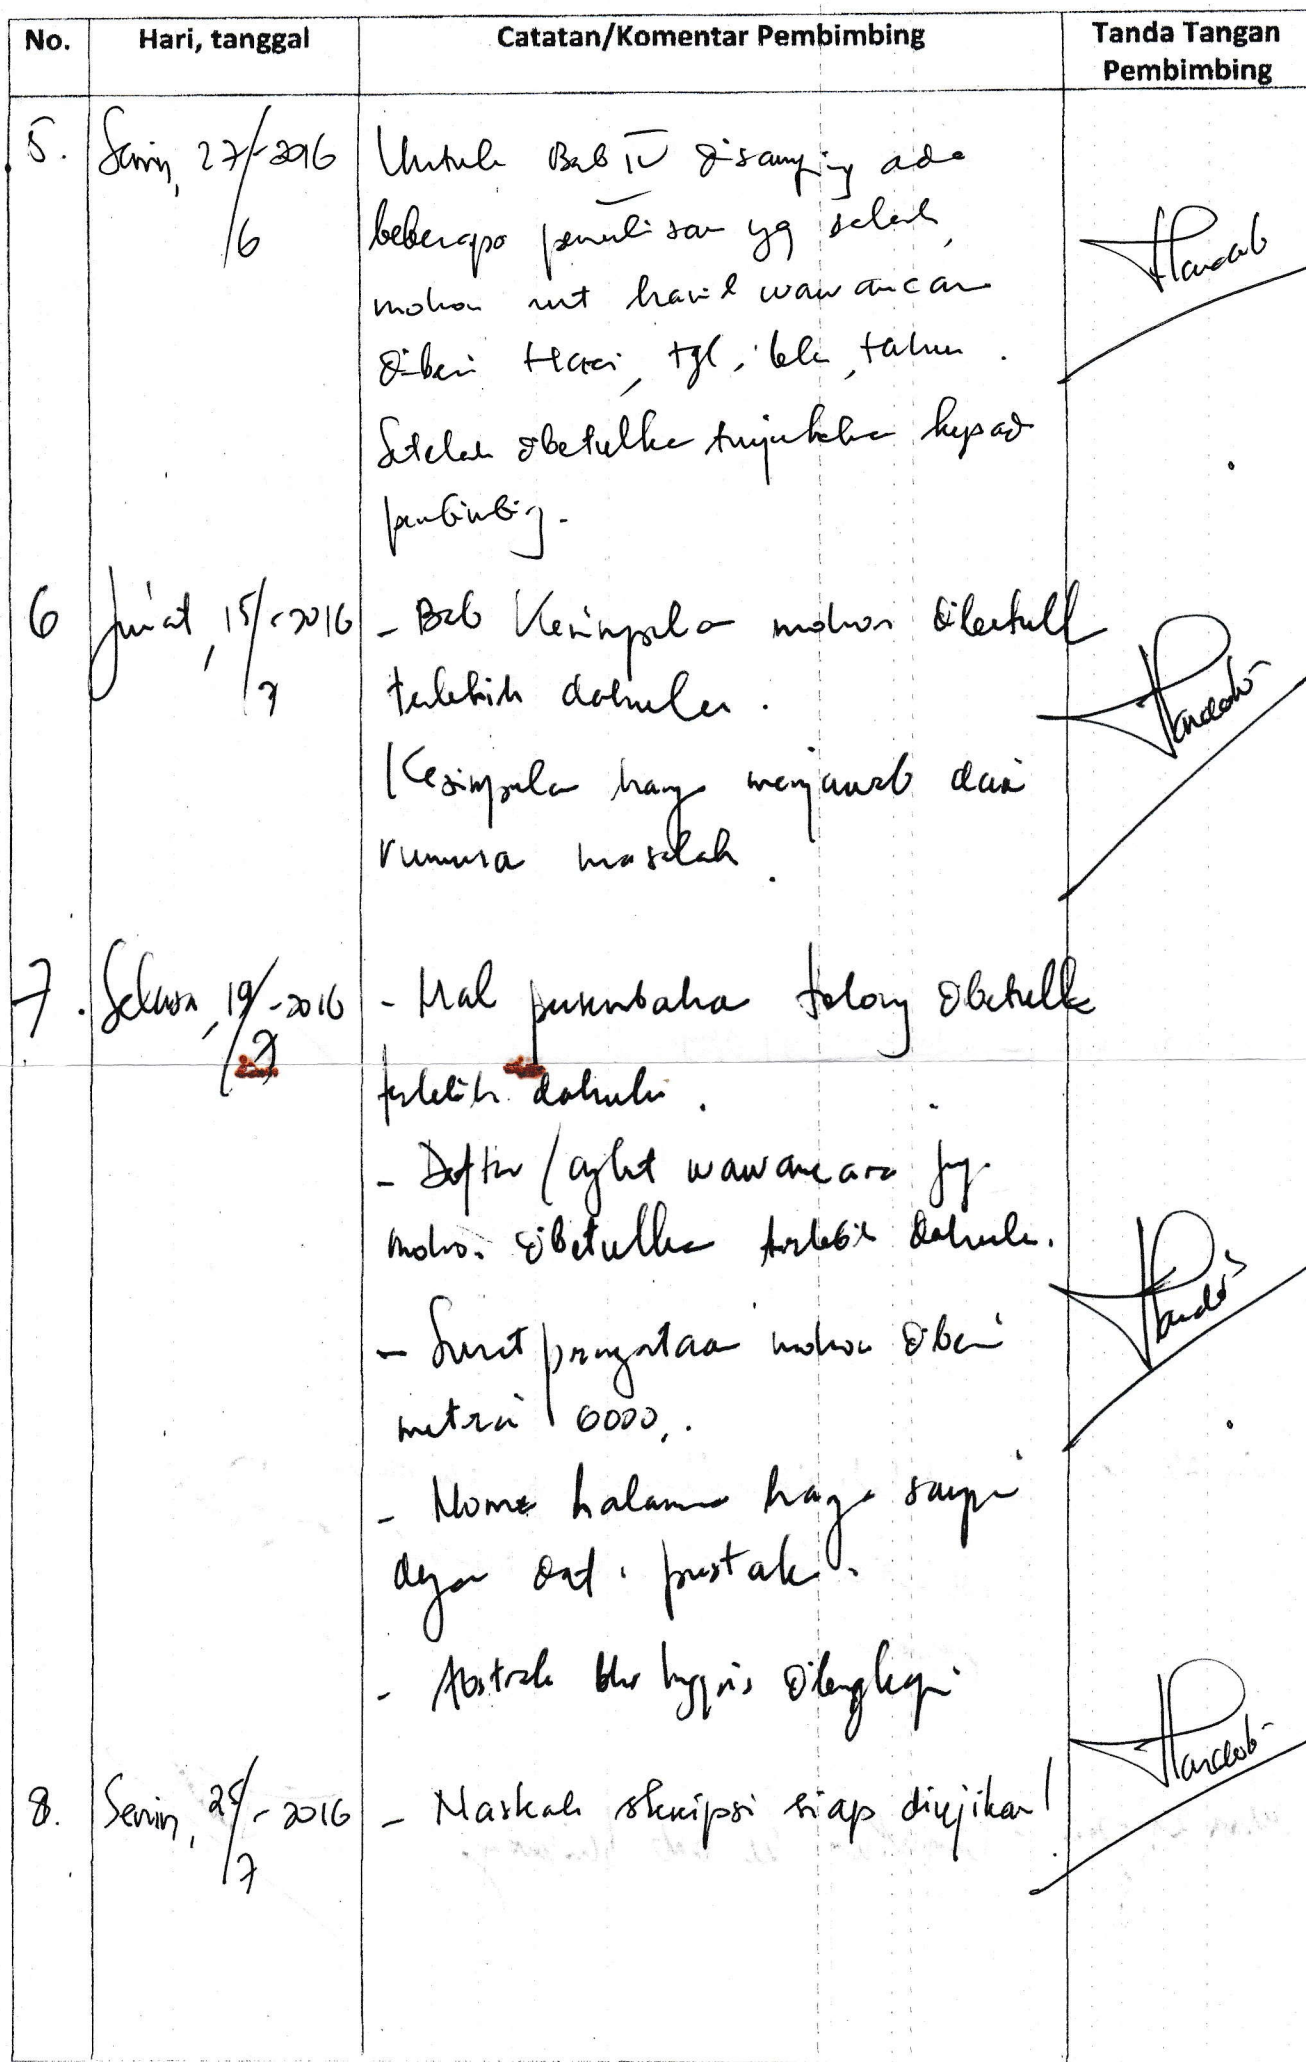 No. Hari, tanggal Catatan/Komentar Pembimbing Tanda Tangan
Pembimbing
5. Senin, 27/6-2016 Untuk Bab IV disamping ada
beberapa penulisan yg salah,
mohon hasil wawancara
diberi Hari, tgl, bln, tahun.
Setelah dibetulkan tunjukkan kepad
pembimbing.
6 Jum'at, 15/7-2016 - Bab Kesimpulan mohon dibetulk
terlebih dahulu.
Kesimpulan hanya menjawab dari
rumusan masalah.
7. Selasa, 19/7-2016 - Hal persembahan tolong dibetulkan
terlebih dahulu.
- Daftar / angket wawancara juga
mohon dibetulkan terlebih dahulu.
- Surat pernyataan mohon diberi
metrai 6000,.
- Nomor halaman hanya sampai
dengan daf. pustaka.
- Abstrak bhs Inggris dilengkapi
8. Senin, 25/7-2016 - Naskah skripsi siap diujikan!